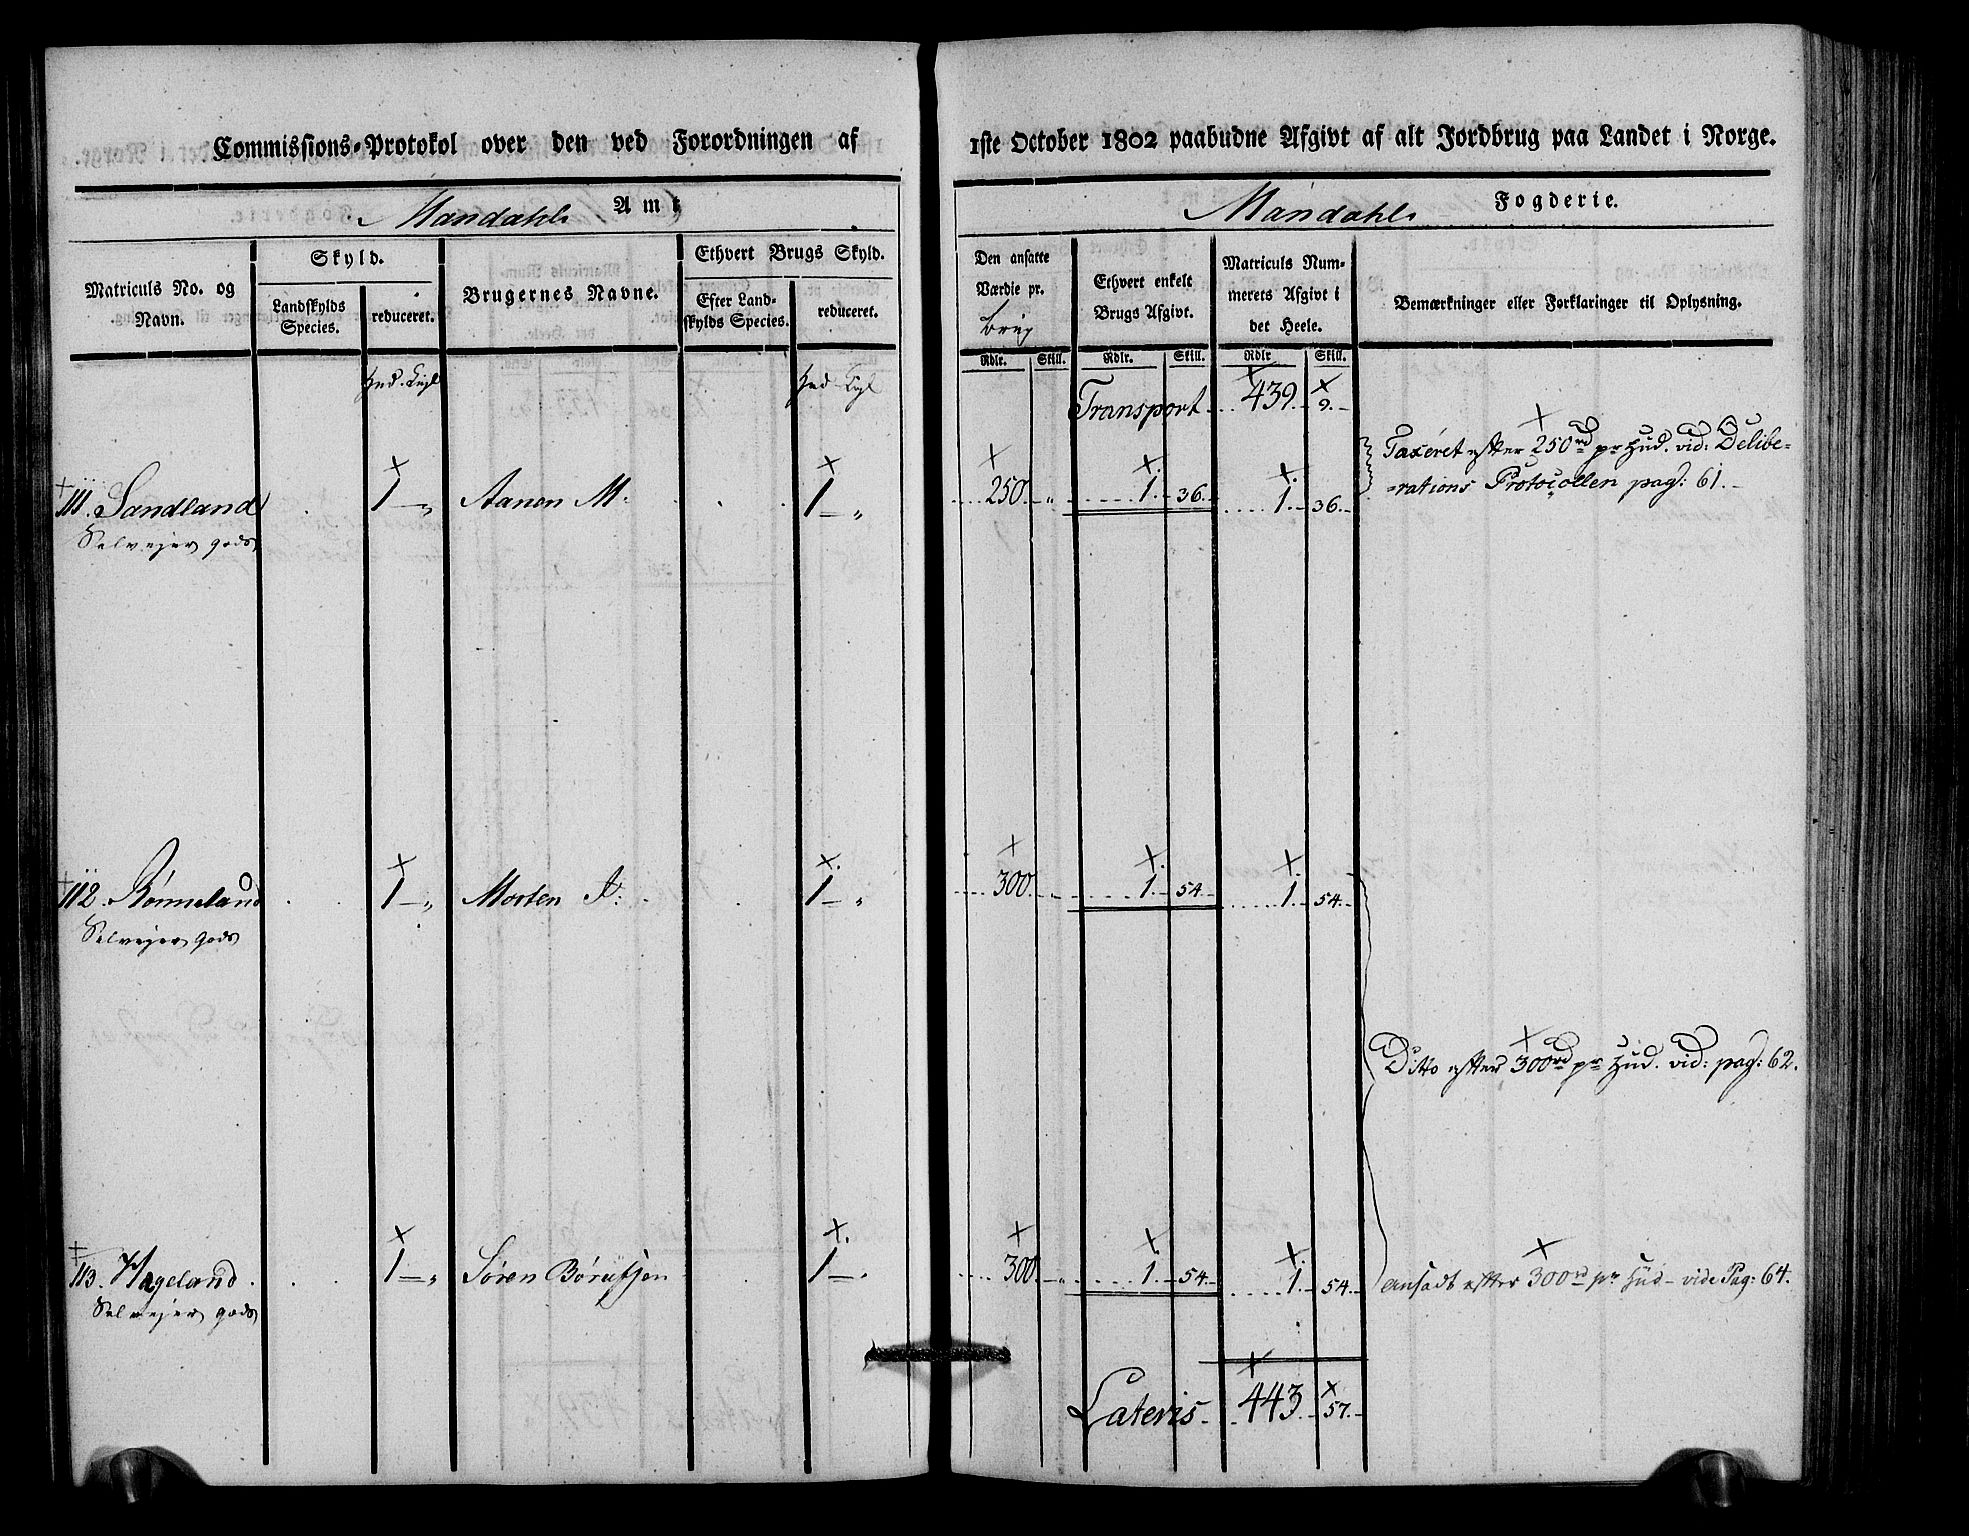 Commissions-Protokol over den ved Forordningen af 1ste October 1802 paabudne Afgivt af alt Jordbrug paa Landet i Norge.
Mandahls Amt
Mandahls Fogderie.
Matriculs No. og Navn.
Skyld.
Landskylds Species.
reduceret.
Brugernes Navne.
Ethvert Brugs Skyld.
Efter Landskylds Species.
reduceret.
Den ansatte Værdie pr. Brug
Ethvert enkelt Brugs Afgivt.
Matriculs Nummerets Afgivt i det Heele.
Bemærkninger eller Forklaringer til Oplysning.
Rdlr. Skill. Rdlr. Skill. Rdlr Skill.
Transport 439. 9.
111. Sandland 1 — „ Aanen M: 1 — „ 250. „ 1. 36. 1. 36. Taxeret efter 250rd pr Hud. vid: Delibe=
Selvejer gods =rations Protocollen pag: 61.
112. Rønneland 1 — „ Morten A: 1 — „ 300. „ 1. 54. 1. 54.
Selvejer Gods
Ditto efter 300rd pr Hud. vid: pag: 62.
113. Hageland 1 — „ Søren Børufsen 1 — „ 300. „ 1. 54. 1. 54. ansadt efter 300rd pr Hud - vide Pag: 64.
Selvejer gods
Lateris 443. 57.